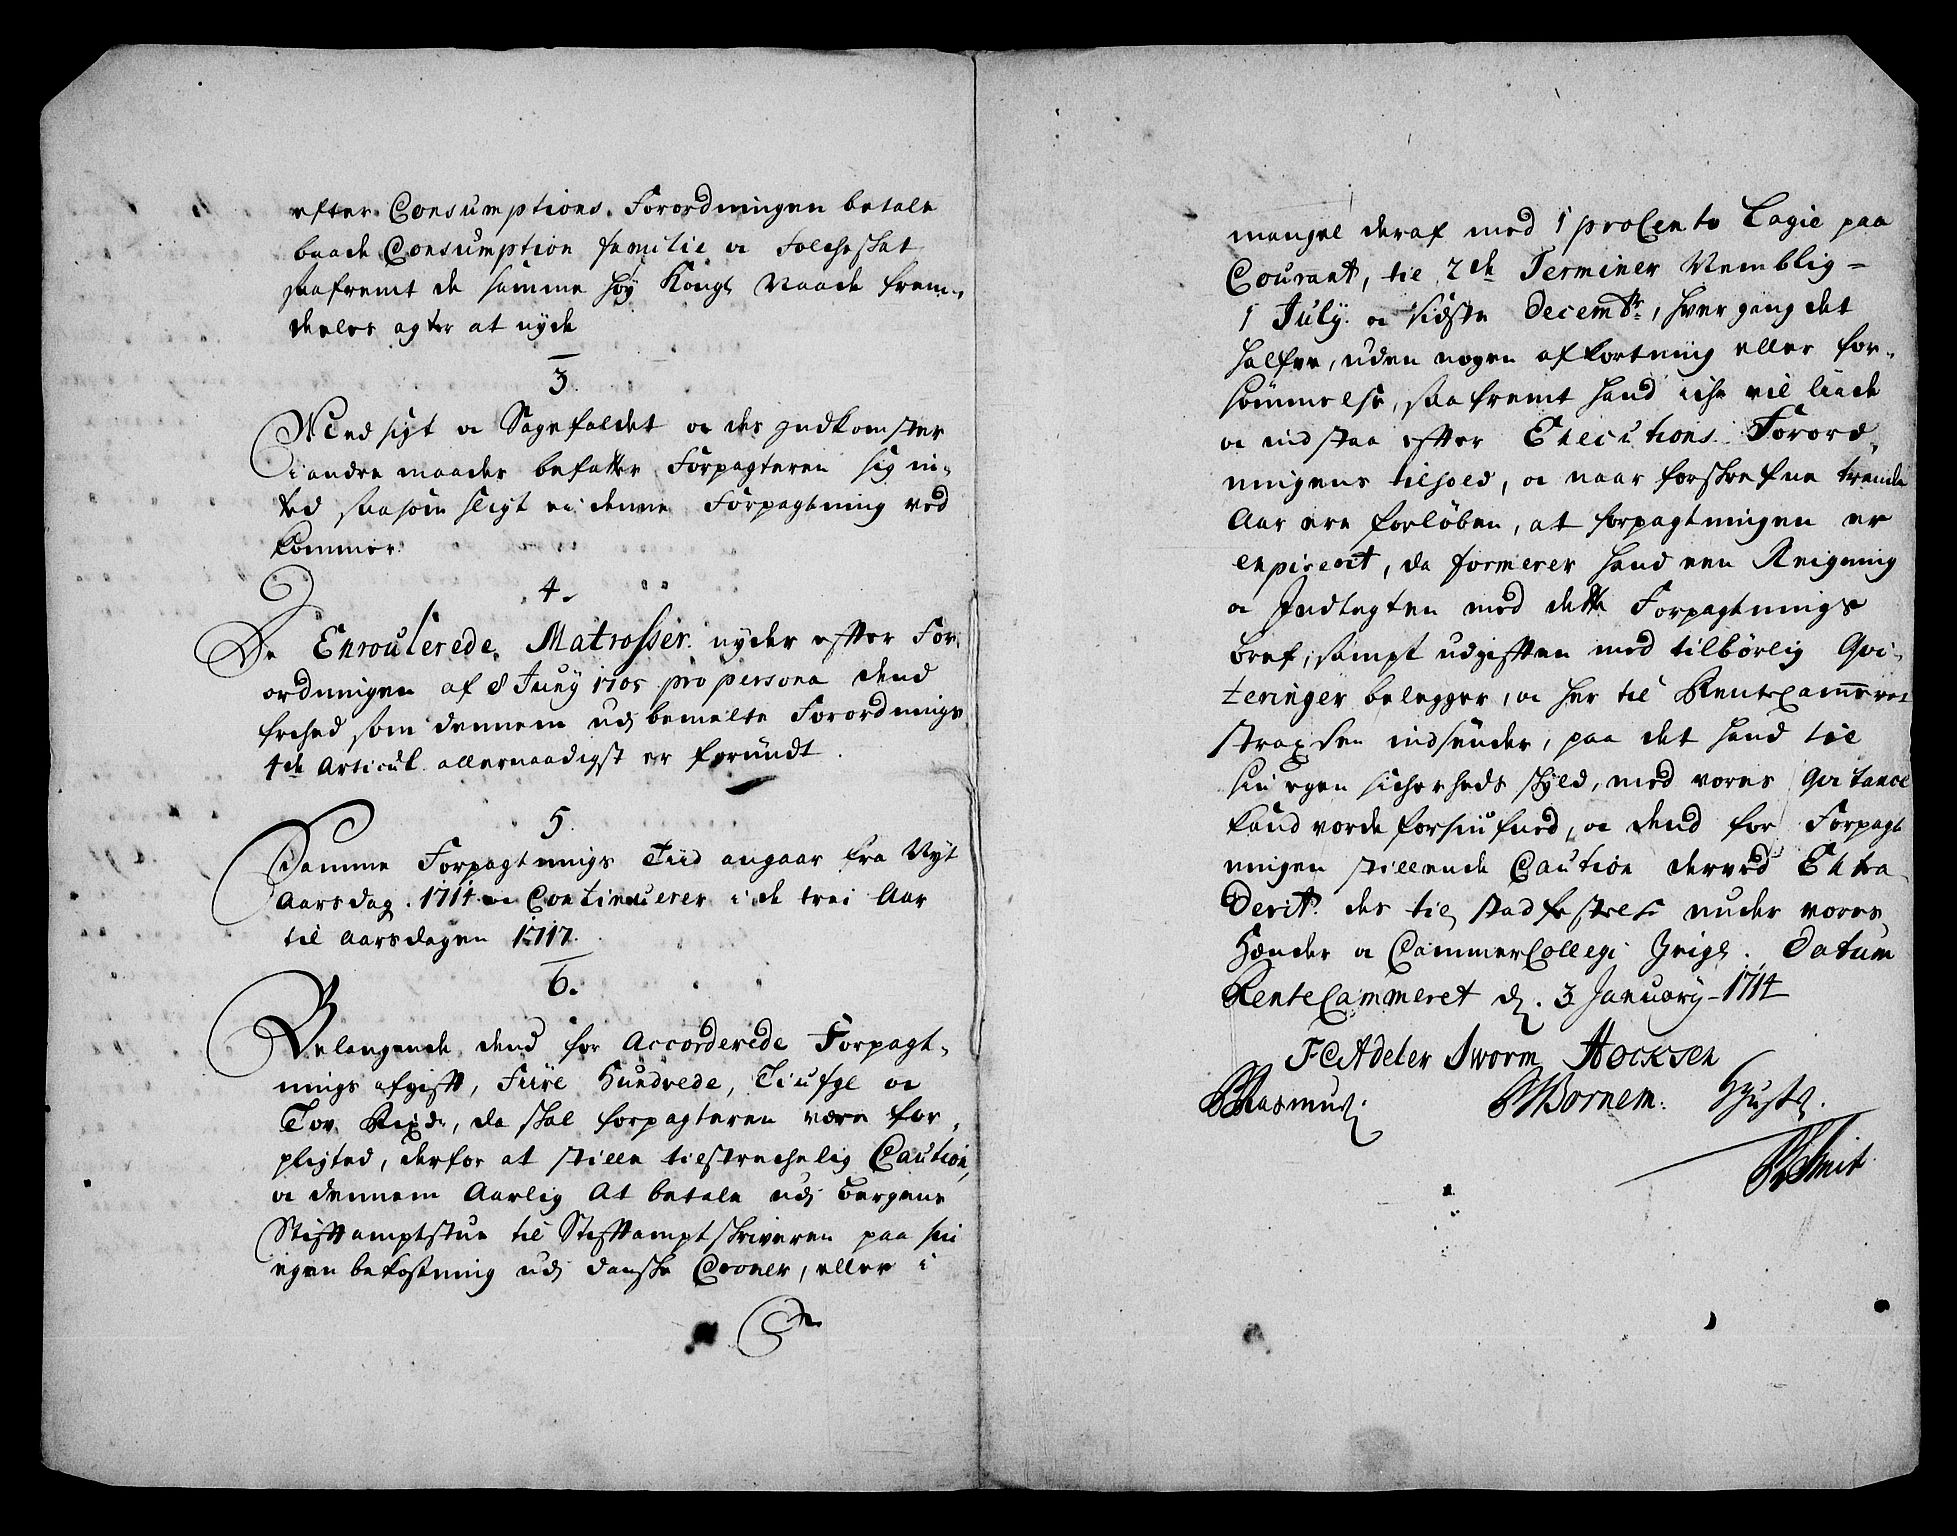 efter Consumptions Forordningen betale
baade Consumption familie oc Folcheskat
saafremt de samme høy Kongl Naade frem-
deeles agter at nyde
3.
Med sigt oc Sagefaldet oc des Indkomster
i andre maader befatter Forpagteren sig in-
ted saasom sligt ei denne Forpagtning ved
kommer.
4.
De Enroulerede Matrosser nyder efter For-
ordningen af 8 Juny 1705 pro persona dend
frihed som dennem udj bemelte Forordnings
4de Articul allernaadigst er forundt.
5.
Samme Forpagtnings Tiid angaar fra Nyt
Aarsdag 1714 oc Continuerer i de trei Aar
til Aarsdagen 1717.
6.
Belangende dend for Accorderede Forpagt-
nings afgifft, Fiire Hundrede, Tiufge oc
Tov Rixdr, da skal forpagteren være for-
pligted, derfor at stille tilstrechelig Caution,
oc dennem Aarlig At betale udj Bergens
Stifftamptstue til Stifftamptskriveren paa sin
egen bekostning udj danske Croner, eller i
mangel deraf med 1 proCento Lagie paa
Courant, til 2de Terminer Nemblig-
1 July oc sidste Decembr, hver gang det
halfve, uden nogen afkortning eller for-
sømmelse, saafremt hand iche vil liide
oc indstaa efter Executions Forord-
ningens tilhold, oc naar forskrefne trende
Aar ere forløben, at forpagtningen er
expirerit, da formerer hand een Reigning
oc Indtegten med dette Forpagtnings
bref, sampt udgifften med tilbørlig Qvi-
teringer belegger, oc her til RenteCammeret
strax den indsender, paa det hand til
sin egen sicherheds skyld, med vores Qvitance
kand vorde forsiufned, oc dend for Forpagt
ningen stillende Caution derved Extra-
derit. des til stadfestelse under vores
Hænder oc CammerCollegi Zeigl. Datum
RenteCammeret d. 3 January 1714
FCAdeler Sworm Hocksen
Rasmus. Bornem. HJust.
Smit